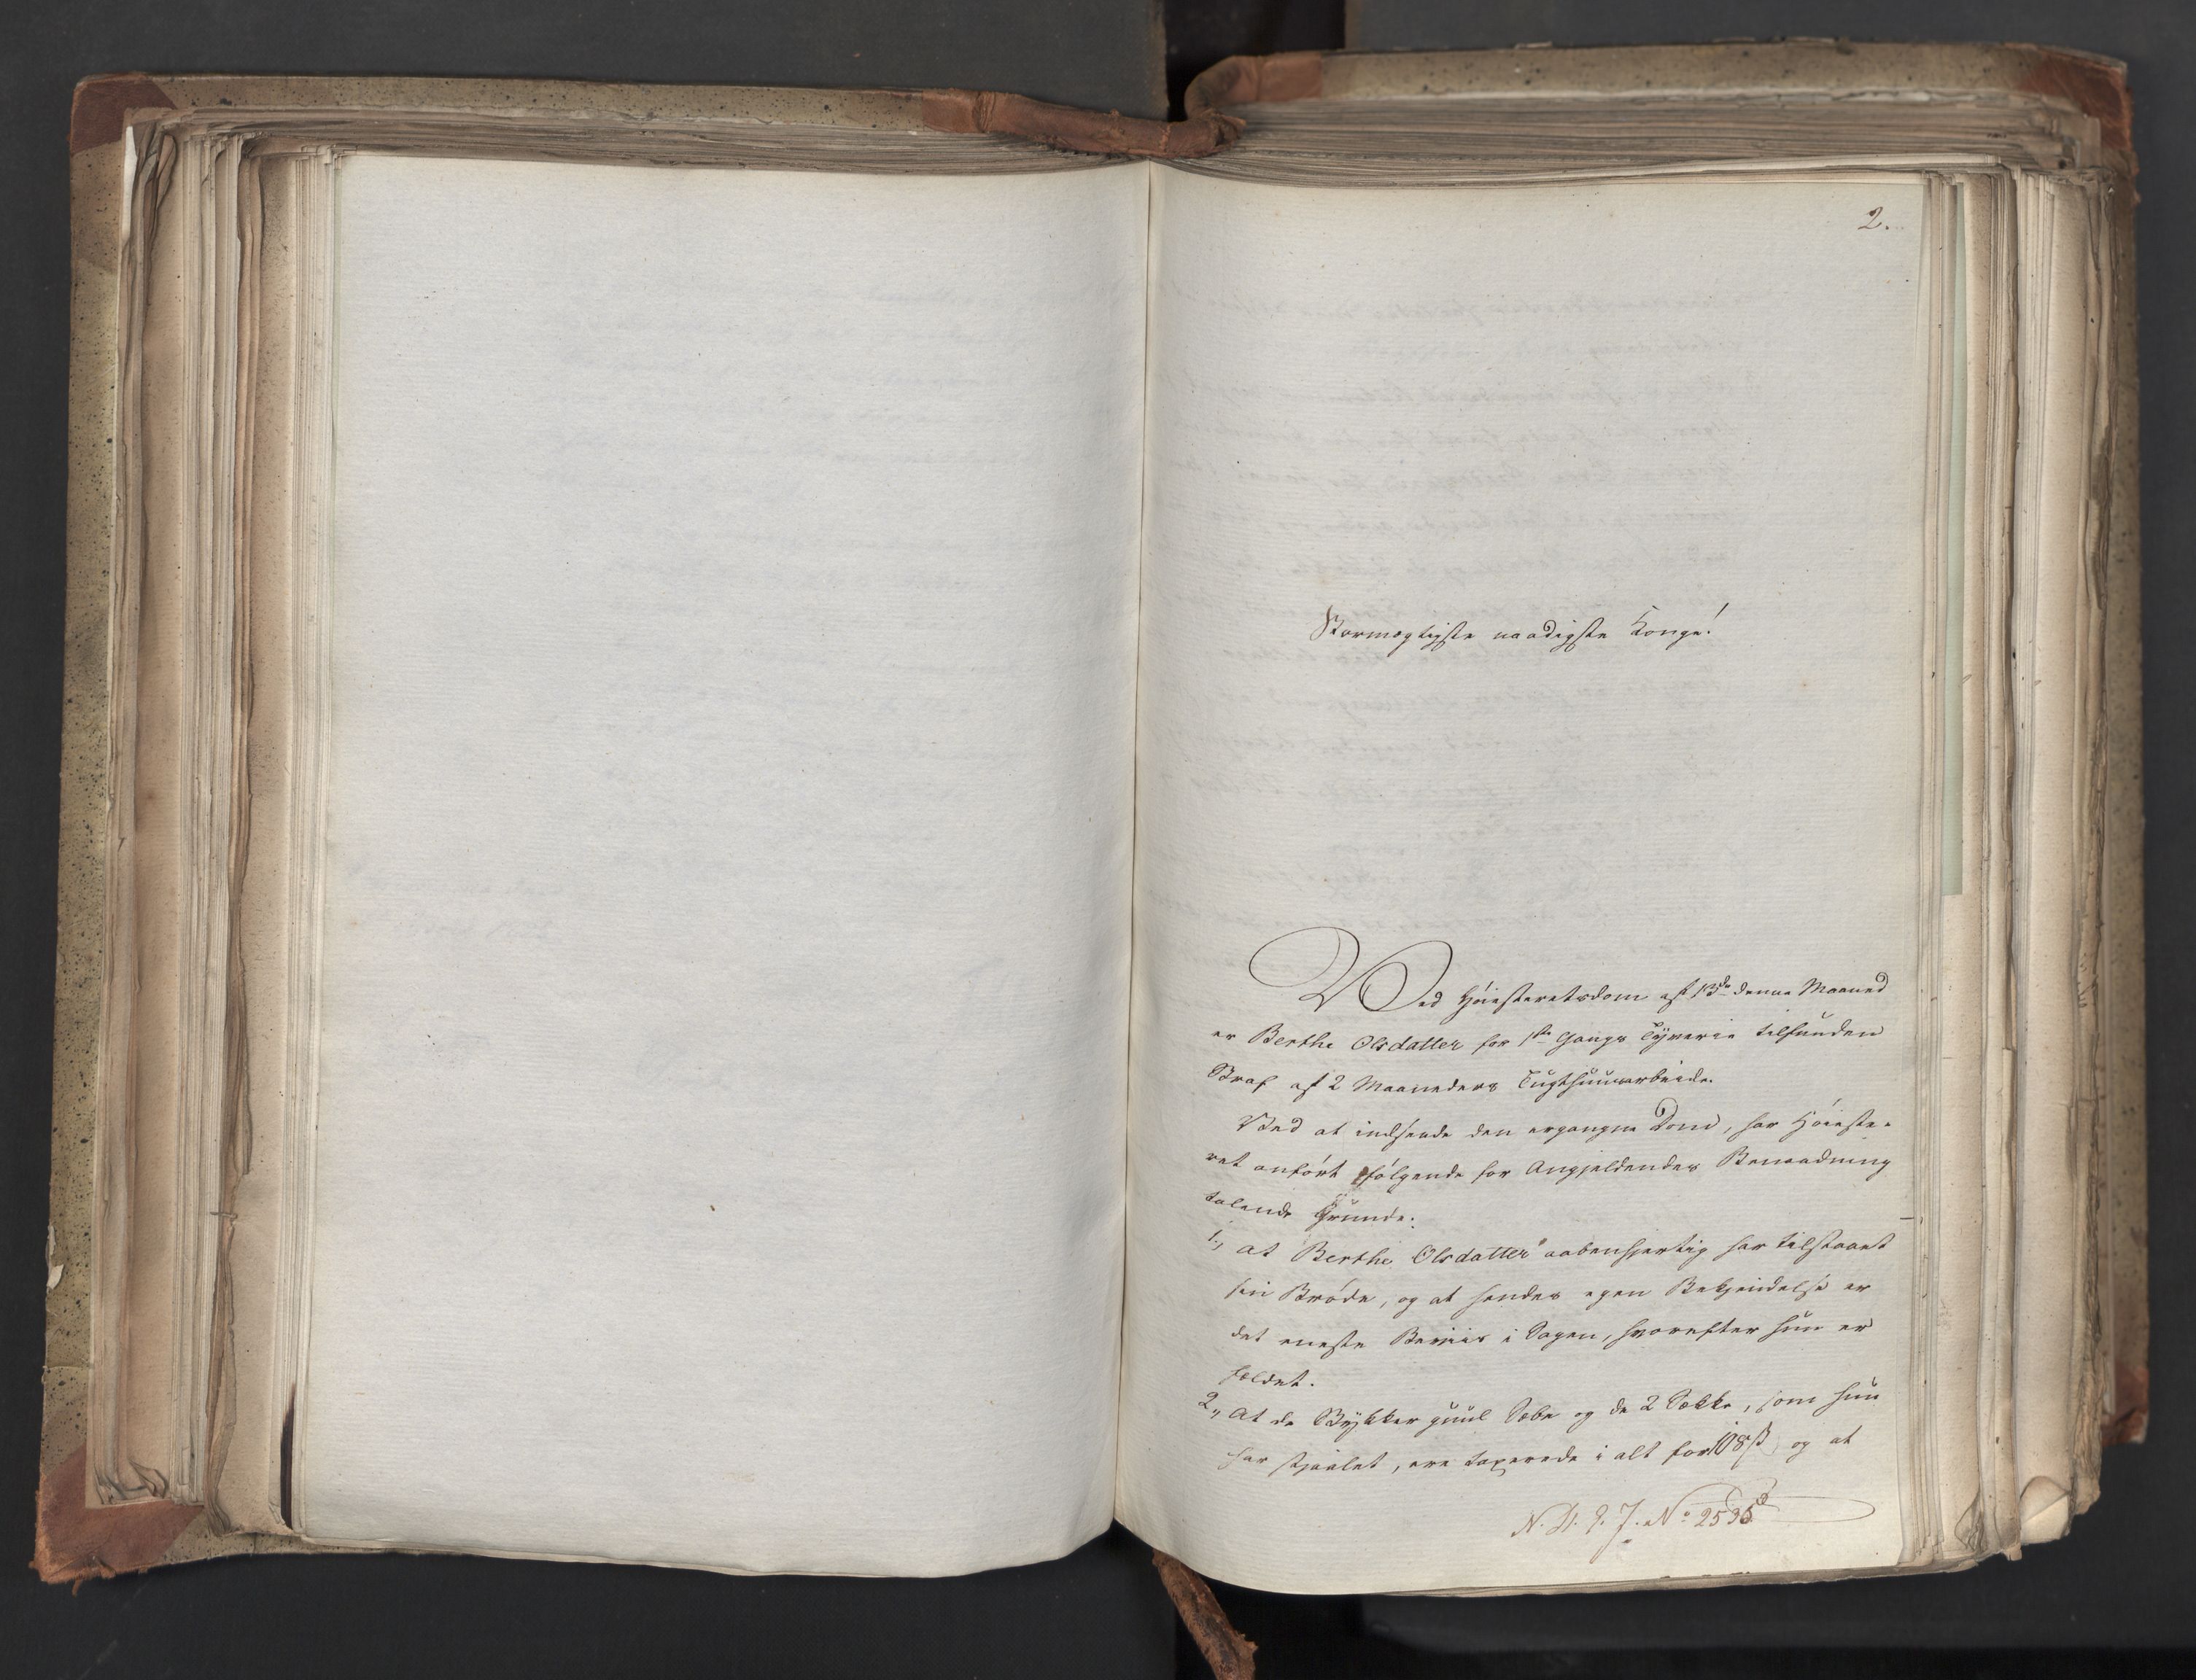 2.
Stormægtigste naadigste Konge!
Ved Høiesteretsdom af 13de denne Maaned
er Berthe Olsdatter for 1ste Gangs Tyverie tilfunden
Straf af 2 Maaneders Tugthuusarbeide.
Ved at indsende den ergangne Dom, har Høieste-
ret anført følgende for Angjeldendes Benaadning
talende Grunde:
1, at Berthe Olsdatter aabenhjertig har tilstaaet
sin Brøde, og at hendes egen Bekjendelse er
det eneste Beviis i Sagen, hvorefter hun er
fældet.
2, At de Stykker guul Sæbe og de 2 Sække, som hun
har stjaalet, ere taxerede i alt for 108 ß og at
N. 2535